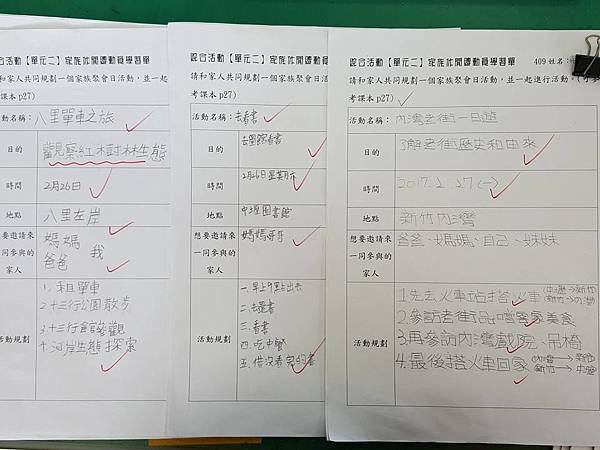 綜合活動【單元二】家族休閒運動員學習單
請和家人共同規劃一個家族聚會日活動,並一起
考課本 p27)
活動名稱: 八里單車之旅
目的 觀察紅樹林生態
時間 2月26日
地點 八里左岸
想要邀請來一同參與的家人
媽媽 我
爸爸
活動規劃
1. 租單車
2. 十三行公園散步
3. 十三行
十. 河岸生態探索
綜合活動【單元二】家族休閒運動員學習單
請和家人共同規劃一個家族聚會日活動,並一起
考課本 p27)
活動名稱: 去看書
目的 去圖書館看書
時間 2月26日星期
地點 中壢圖書館
想要邀請來一同參與的家人
媽媽哥哥
活動規劃
一. 早上
二. 去選書
三. 看書
四. 吃中餐
五. 借沒看完的書
綜合活動【單元二】家族休閒運動員學習單 409 姓名:
請和家人共同規劃一個家族聚會日活動,並一起進行活動。(可參
考課本 p27)
活動名稱: 內灣老街一日遊
目的 了解老街歷史和由來
時間 2017.2.27(一)
地點 新竹內灣
想要邀請來一同參與的家人
爸爸、媽媽、自己、妹妹
活動規劃
1. 先去火車站搭火車 (中壢→新竹
新竹→內灣)
2. 參訪老街品嚐客家美食
3. 再參訪內灣戲院、吊橋
4. 最後搭火車回家 (內灣→新竹
新竹→中壢)